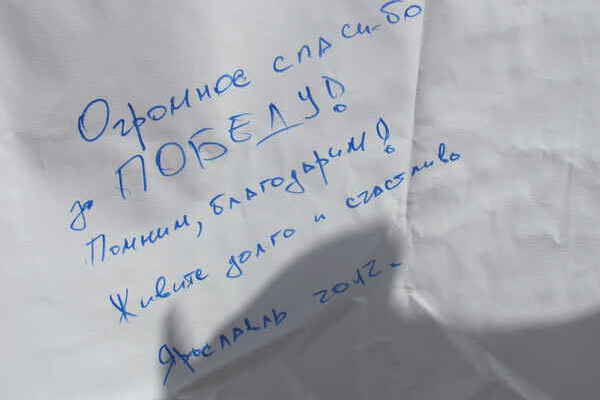 Огромное спасибо
за ПОБЕДУ!
Помним, благодарим!
Живите долго и счастливо
Ярославль 2012г.